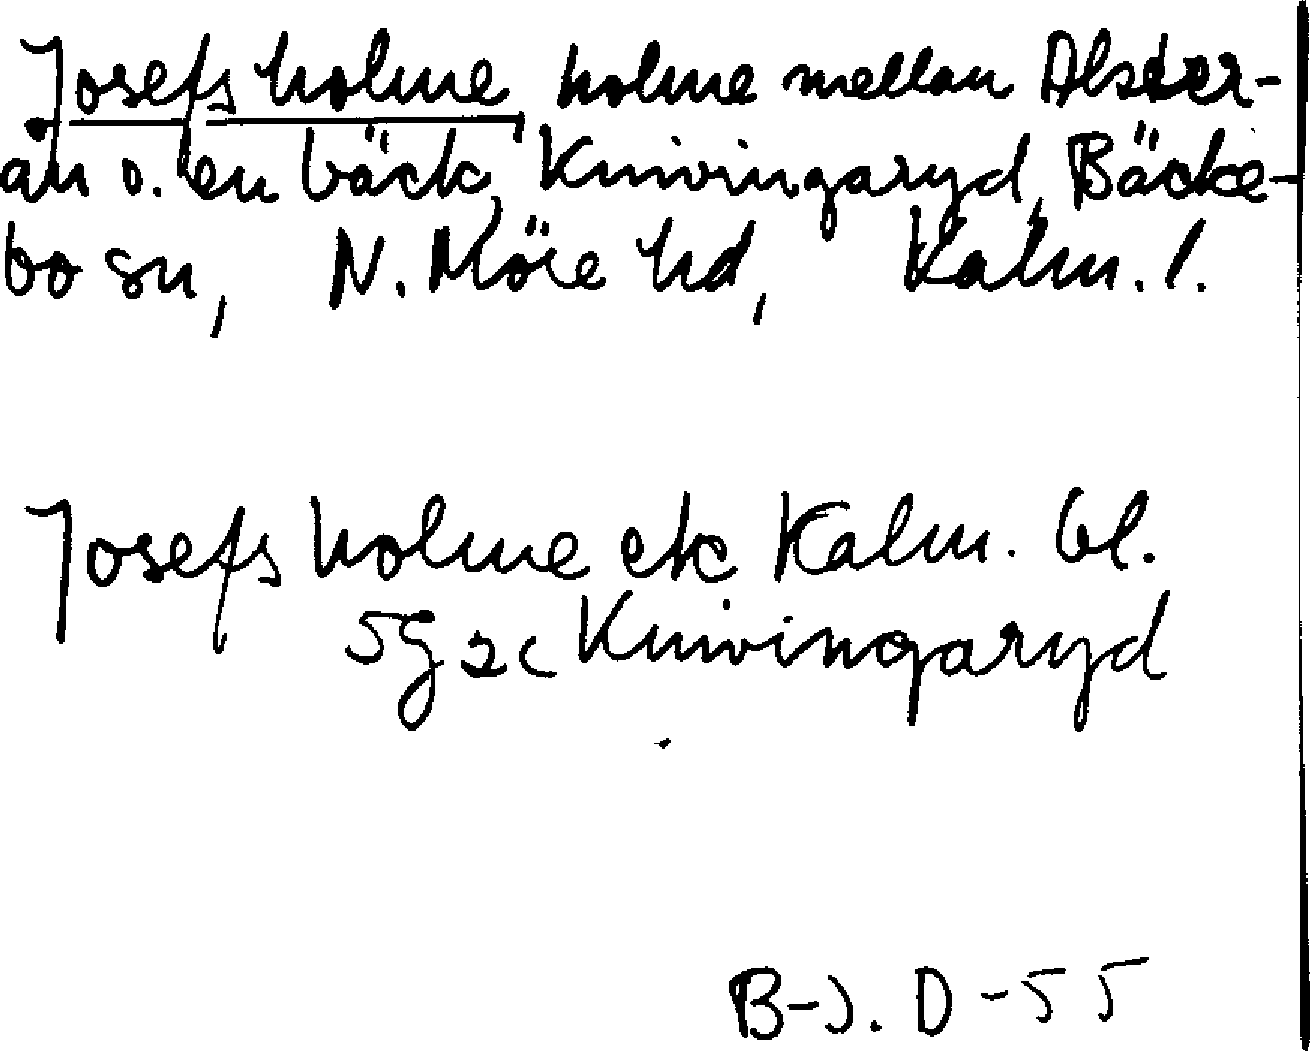 Josefs holme, holme mellan Alster-
ån o. en bäck, Knivingaryd, Bäcke-
bo sn, N. Möre hd, Kalm. l.
Josefs holme ek Kalm. bl.
5g 2c Knivingaryd
B-J. D -55